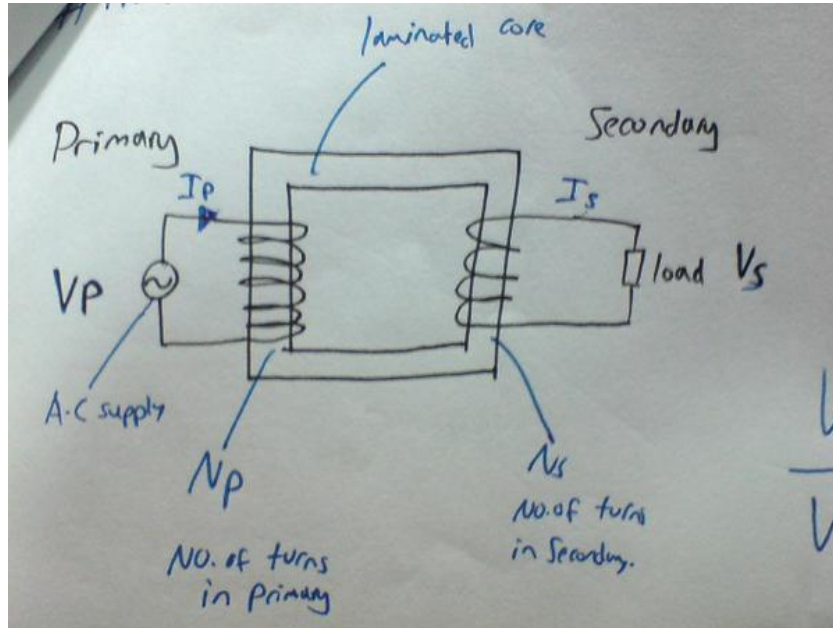 laminated core
Primary
Secondary
Ip
Is
Vp
load Vs
A.C supply
Np
Ns
No. of turns
in Primary
No. of turns
in Secondary.
V
V